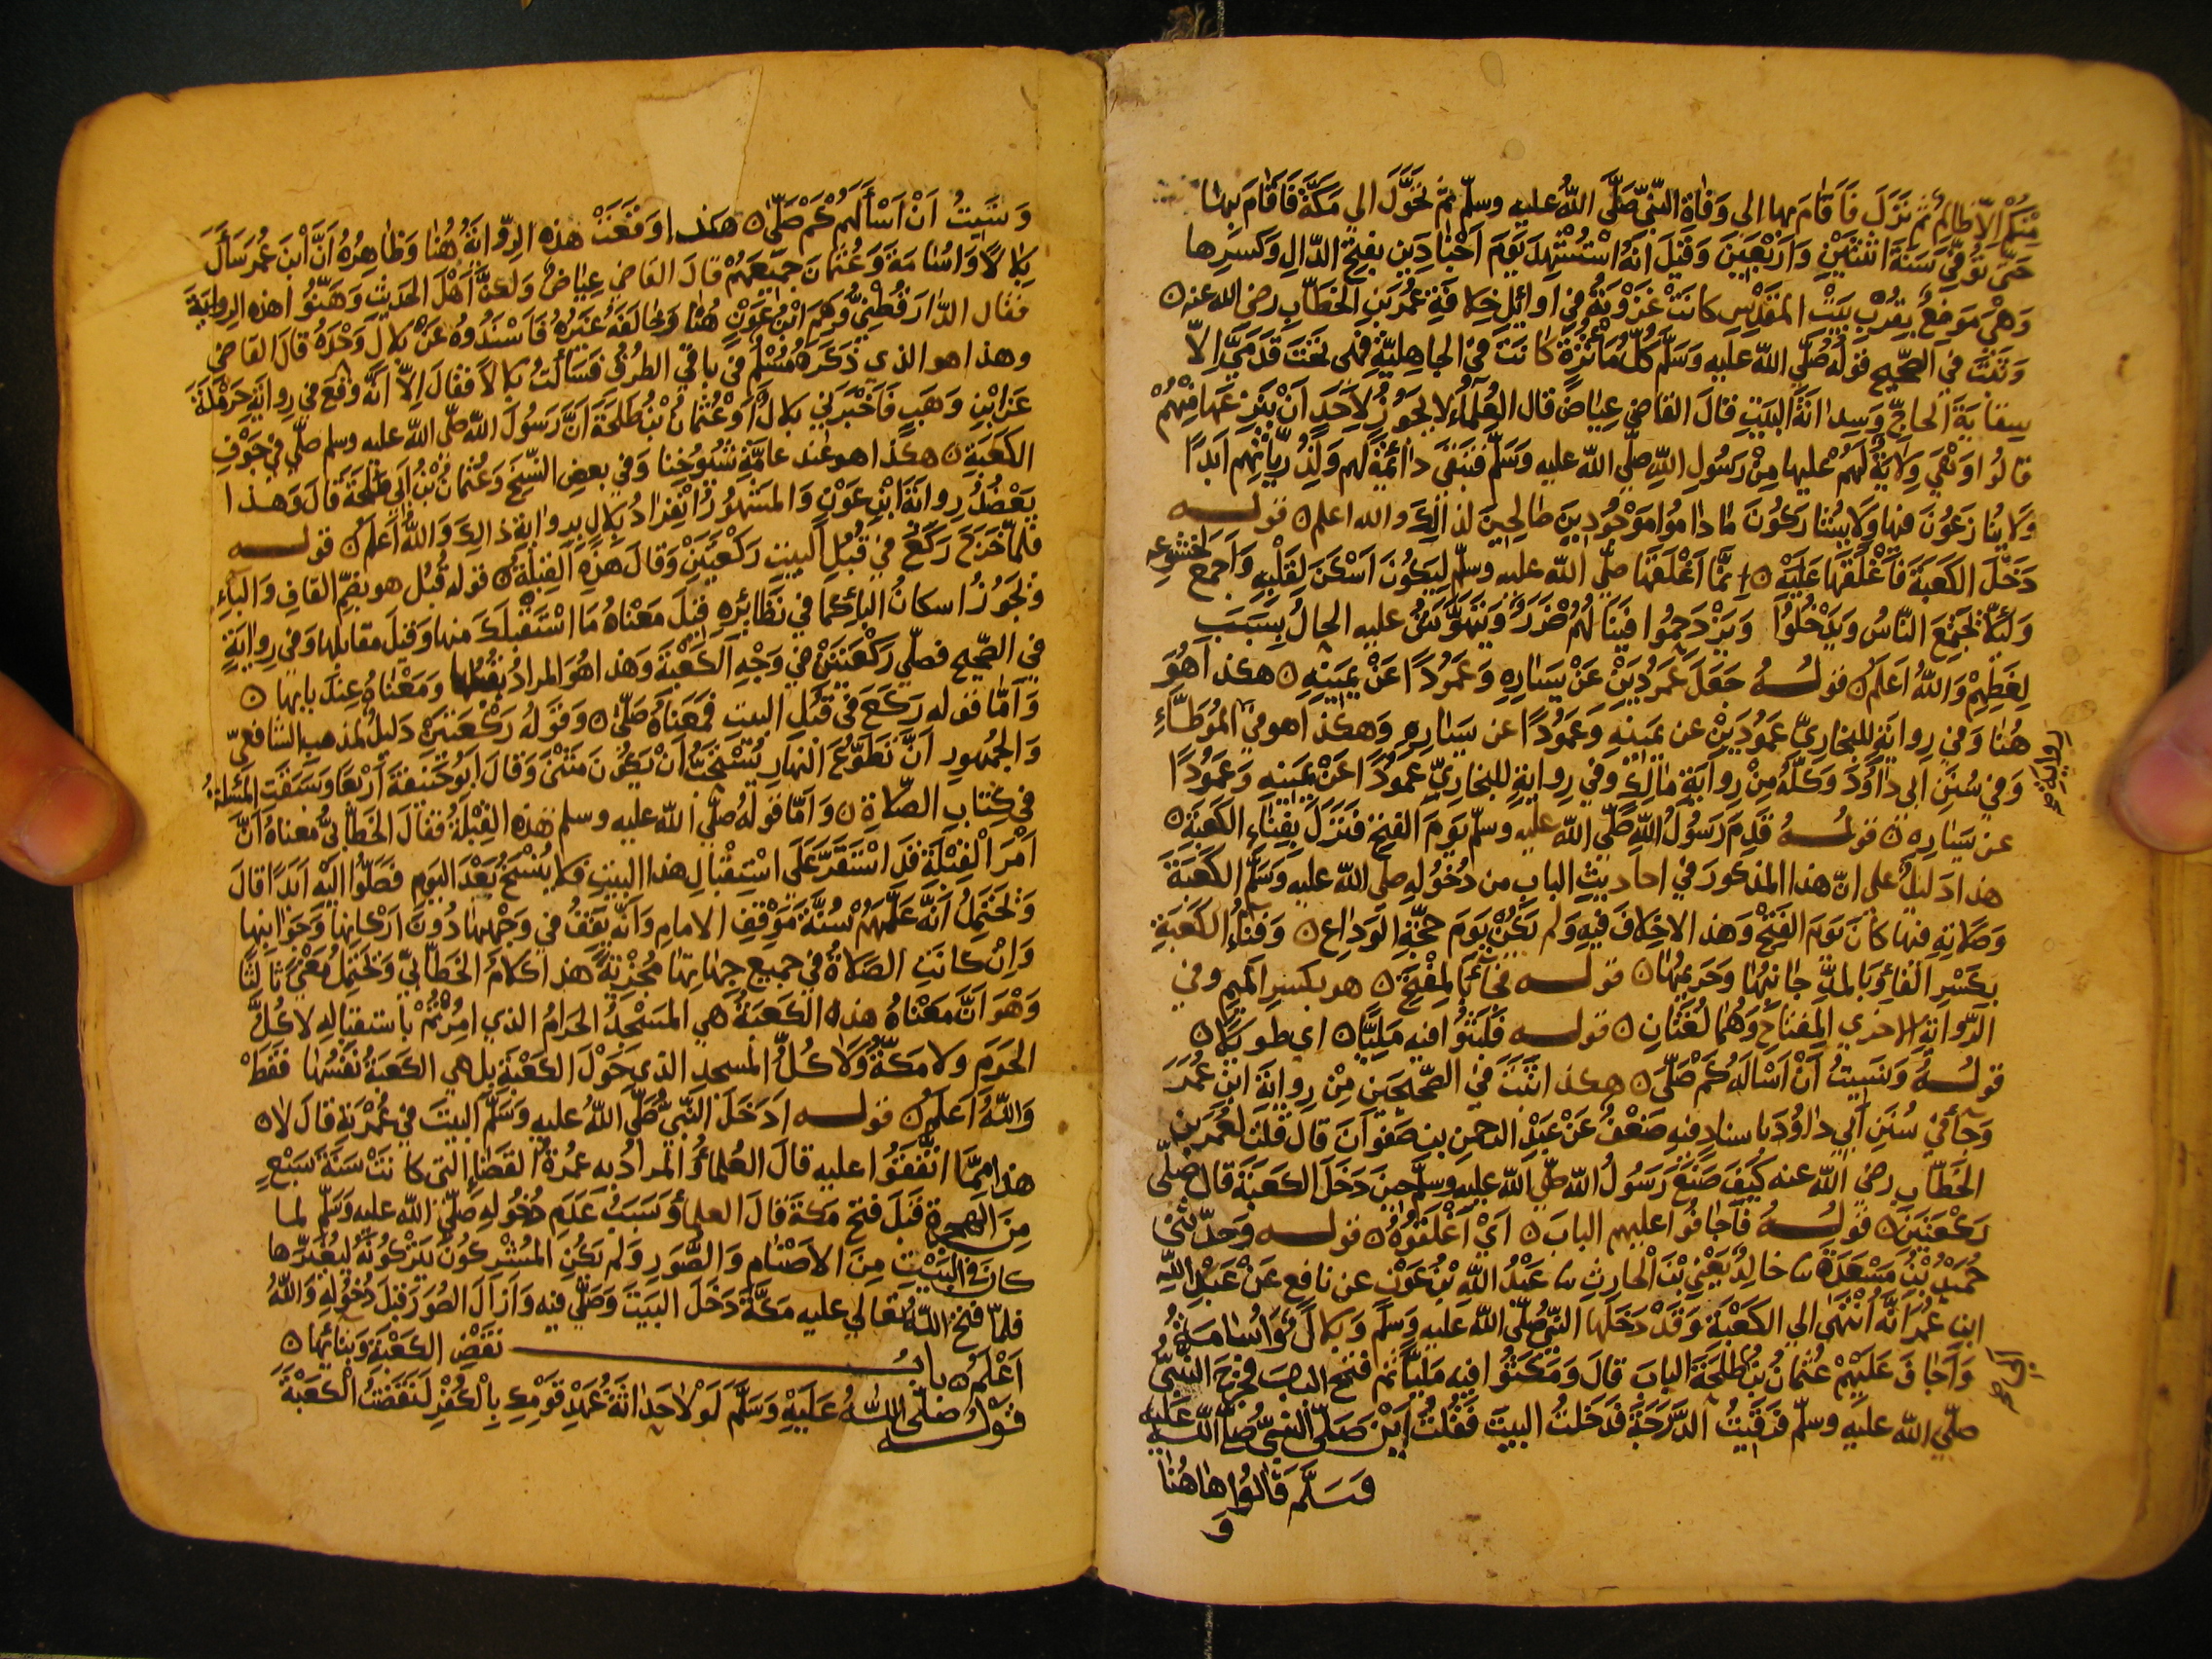 مِنْكُمْ الَّا ظالم ثُم نَزَلَ فَاَقَامَ بها الى وَفَاةِ النَّبِيّ صَلَّى اللهُ عليه وسلّم ثمّ تَحَوَّلَ الي مَكَّةَ فَاَقَامَ بِهَا
حَتّى تُوُفِّيَ سَنَةَ اثْنَتَيْنِ وَاَرْبَعِينَ وَقِيلَ انَهُ اسْتُشْهِدَ يَوْمَ اَجْنَادِين بفتح الدّالِ وَكَسرِها
وَهْيَ مَوضِعٌ بِقُرْبِ بَيْت المَقْدِسِ كانَتْ غَزْوَتُهُ في اوائِل خِلافَةِ عُمَرَ بْنِ الخَطّابِ رضى الله عنه
وَثَبَتَ في الصَّحيحِ قولُهُ صَلَّي اللّه عليه وَسَلّم كُلُّ مَأْثُرَةٍ كَانَتْ في الجاهِليّةِ فَهي تَحْتَ قَدَمَيَّ اِلّا
سِقَايَةَ الحَاجِّ وَسِدَانَةَ البَيْتِ قَالَ القَاضي عِيَاضٌ قال العُلَمَاءُ لا يَجُوزُ لِاَحَدٍ اَنْ يَنْزِعَهَا مِنْهُمْ
قالُوا وَهْيَ وِلَايَةٌ لَهُمْ عليها مِنْ رَسُولِ اللهِ صلّي الله عليه وَسَلّم فَتَبْقَى دَائِمَةً لهم وَلِذُرِّيّاتِهِم اَبَدًا
وَلا يُنَازَعُونَ فيها وَلا يُشَارَكُونَ مَا دَامُوا مَوْجُودِينَ صَالِحِينَ لذلِكَ والله اعلم قوله
دَخَلَ الكَعبَةَ فَاَغْلَقَهَا عَلَيْهِ اِنَّمَا اَغْلَقَهَا صلّي اللّه عليه وسلّم لِيَكُونَ اَسْكَنَ لِقَلْبِهِ وَاَجمعَ لخشوعِهِ
وَلِئَلّا يَجتَمِعَ النّاسُ وَيَدْخُلُوا وَيَزْدَحِمُوا فَيَنَالَهُم ضَرَرٌ وَيَتَهَوَّشَ عليه الحالُ بِسَبَبِ
لَغَطِهِمْ وَاللهُ اعلم قوله جَعَلَ عَمُودَيْنِ عَنْ يَسَارِهِ وَعَمُودًا عَنْ يَمِينِهِ هكذا هُوَ
هُنَا وَفي رِوايَةٍ للبخاريّ عَمُودَيْنِ عن يَمِينِهِ وَعَمُودًا عن يَسَارِهِ وَهكذا هو في المُوَطَّاءِ
وَفي سُنَنِ ابي دَاوُدَ وَكُلُّهُ مِنْ رِوَايَةِ مَالِكٍ وَفي رِوايةٍ للبخاريّ عَمُودًا عَنْ يَمِينِهِ وَعَمُودًا
رواية صح
عن يَسَارِه قوله قَدِمَ رَسُولُ اللهِ صَلّى الله عليه وسلّم يَوْمَ الفتحِ فَنَزَلَ بِفِنَاءِ الكعْبَةِ
هذا دَليلٌ على انّ هذا المذكورَ في احادِيثِ البابِ من دُخُولِهِ صلّى الله عليه وَسَلّم الكَعْبَةَ
وَصَلاتِهِ فيها كَانَ يَوْمَ الفَتْحِ وَهذا لا خِلافَ فيهِ وَلم يَكُنْ يَوْمَ حَجَّةِ الوَدَاع وَفِنَاءُ الكَعْبَةِ
بِكَسْرِ الْفَاءِ وَبالمدِّ جَانِبُهَا وَحَرِيمُهَا قوله فجَاءَ بالمِفْتَح هو بكسرِ الميم وفي
الرّوايةِ الاخري المِفتاحِ وَهُمَا لُغَتَانِ قوله فَلَبِثُوا فيه مَلِيًّا اي طويلًا
قوله وَنَسِيتُ اَنْ اَسْاَلَهُ كَم صَلّى هكذا ثَبَتَ في الصّحيحين مِنْ رِوايَةِ ابْنِ عُمَرَ
وَجَاءَ في سُنَنِ اَبي دَاوُدَ باسنادٍ فيهِ ضَعْفٌ عَنْ عَبْدِ الرحمنِ بنِ صَفوانَ قال قُلْتُ لعُمَر بن
الخَطّابِ رضي الله عنه كَيْفَ صَنَعَ رَسُولُ الله صلّي الله عليه وسلّم حِينَ دَخَلَ الكعبةَ قال صلّى
رَكْعَتَيْنِ قوله فَاَجَافُوا عليهم البابَ اَيْ اَغْلَقُوهُ قوله وَحَدّثني
حُمَيْدُ بْنُ مَسْعَدَةَ نا خالِدٌ يَعْنِي بْنَ الحارِثِ نا عَبْدُ اللّه بْنُ عَوْنٍ عن نافِعٍ عَنْ عَبْدِ اللّهِ
ابن عُمَرَ انّه انْتَهَى الي الكَعْبَةِ وَقَدْ دَخَلَهَا النَّبيُّ صَلّى الله عليه وَسَلّم وَبِلَالٌ وَاُسَامَةُ
وَاَجَافَ عَلَيْهِمْ عُثْمَانُ بْنُ طَلْحَةَ البابَ قَالَ وَمَكَثُوا فِيهِ مَلِيًّا ثم فُتِحَ البابُ فَخَرَجَ النّبيُّ
صلّي الله عليه وسلّم فَرَقِيتُ الدَّرَجَةَ فَدَخلتُ البيتَ فَقُلْتُ اَيْنَ صَلّى النّبيُّ صلّى الله عليه
وَسَلَّم قَالُوا هَاهُنَا
وَ
وَنَسِيتُ اَنْ اَسْأَلَهُمْ كَمْ صَلّى هكذا وَقَعَتْ هذِهِ الرّوايَةُ هُنَا وَظَاهِرُهُ اَنَّ ابْنَ عُمَرَ سَأَلَ
بِلالًا وَاُسَامَةَ وَعُثْمَانَ جَمِيعَهُمْ قَالَ القَاضي عِيَاضٌ وَلكنَّ اَهْلَ الحَدِيثِ وَهَّنُوا هذه الروايَةَ
فقال الدّارَقُطْنِيُّ وَهِمَ ابْنُ عَوْنٍ هُنَا وَخَالَفَهُ غَيْرُهُ فَاَسْنَدُوهُ عَنْ بِلال وَحْدَهُ قالَ القاضي
وهذا هو الذي ذَكَرَهُ مُسْلِمٌ في باقي الطُرُقِ فَسَأَلْتُ بِلالًا فقالَ اِلّا اَنَّهُ وَقَعَ في رِوايَةِ حَرْمَلَةَ
عَنْ ابْنِ وَهَبٍ فَاَخْبَرَني بِلالٌ اَوْ عُثْمَانُ بْنُ طَلْحَةَ اَنَّ رَسُولَ الله صلّي اللّه عليه وسلم صلّي في جَوْفِ
الكَعبَةِ هكذا هو عِنْدَ عامّةِ شُيُوخِنَا وَفي بعضِ النُّسَخِ وَعُثْمَانُ بْنُ اَبي طَلْحَةَ قالَ وَهذا
يَعْضُدُ رِوايَةَ ابْنِ عَوْنٍ وَالمَشهُورُ انْفِرَادُ بِلالٍ بِرِوايَةِ ذالِكَ وَاللّهُ اَعلَم قوله
فَلمّا خَرَجَ رَكَعَ في قُبُلِ البيتِ رَكْعَتَيْنِ وَقَالَ هذِهِ القِبْلَةُ قوله قُبُل هو بضمِّ القافِ وَالباءِ
وَيَجُوزُ اسكانُ الباءِ كما في نَظَائِرِهِ قِيلَ مَعْنَاهُ مَا اسْتَقْبَلَكَ منها وَقِيلَ مقابلها وَفي رِوايَةٍ
في الصّحيحِ فصلّي رَكْعَتَيْنِ في وَجْهِ الكَعْبَةِ وَهذا هُوَ المرادُ بقبُلها وَمَعْنَاهُ عِنْدَ بابها
وَاَمّا قوله رَكَعَ في قُبُلِ البيتِ فَمَعناهُ صَلّى وَقَوْلُهُ رَكْعَتَيْنِ دَليلٌ لمذهبِ الشّافعيِّ
وَالجمهورِ انَّ تَطَوُّعَ النهارِ يُسْتَحَبُّ اَنْ يَكُونَ مَثْنَى وَقالَ اَبُو حَنِيفَةَ اَرْبَعًا وَسَبَقَتِ المَسْئَلةُ
في كِتَابِ الصّلاةِ وَاَمّا قولُهُ صلّي الله عليه وسلم هذِهِ القِبْلَةُ فقالَ الخَطّابيُّ معناهُ اَنَّ
اَمْرَ القِبْلَةِ قَد اسْتَقَرَّ عَلَى اسْتِقْبَالِ هذا البيتِ فَلا يُنْسَخُ بَعْدَ اليَومِ فَصَلّوا اليْهِ اَبَدًا قالَ
وَيَحْتَمِلُ اَنَّهُ عَلَّمَهُمْ سُنَّةَ مَوْقِفِ الامامِ وَاَنّهُ يَقِفُ في وَجْهِهَا دُونَ اَرْكانِهَا وَجَوَانِبِها
وَاِنْ كَانَتِ الصَلاةُ في جميعِ جهَاتِهَا مُجْزِيَةً هذا كَلامُ الخَطّابيِّ وَيَحْتَمِلُ مَعْنًى ثَالِثًا
وَهْوَ اَنَّ مَعْنَاهُ هذِهِ الكَعْبَةُ هي المَسْجِدُ الحَرَامُ الذي اُمِرْتُمْ باستقبالِهِ لا كُلَّ
الحَرَمِ ولا مكّةَ وَلا كُلَّ المسجدِ الذي حَوْلَ الكَعْبَةِ بل هي الكعبَةُ نَفْسُهَا فَقَطْ
وَاللّهُ اَعلمُ قوله اَدَخَلَ النَّبيُّ صَلَّي اللهُ عليه وَسَلّم البيتَ في عُمْرَتِهِ قالَ لا
هذا ممّا اتّفَقُوا عليهِ قالَ العُلماءُ وَالمرادُ به عمرةُ القضاءِ التي كانَتْ سَنَةَ سَبْعٍ
مِنَ الهِجرةِ قَبْلَ فتحِ مكةَ قالَ العلماءُ وَسَبَبُ عَدَمِ دُخُولِهِ صلّي الله عليه وَسَلّم لما
كانَ في البيتِ مِنَ الاصْنَامِ وَالصُّوَرِ وَلم يَكُنِ المُشْرِكُونَ يَتْرُكُونَهُ ليُغَيِّرَها
فلمّا فَتَحَ اللّهُ تعالي عليه مَكَّةَ دَخَلَ البَيتَ وَصَلّي فيهِ وَاَزَالَ الصُوَرَ قبلَ دُخُولِهِ وَاللّهُ
اَعْلَمُ بابُ نَقْضِ الكَعْبَةِ وَبِنَائِهَا
قَوْله صَلّى اللهُ عَلَيْهِ وَسَلَّمَ لَوْلَا حَدَاثَةُ عَهْدِ قَوْمِكِ بِالْكُفْرِ لَنَقَضْتُ الْكَعْبَةَ